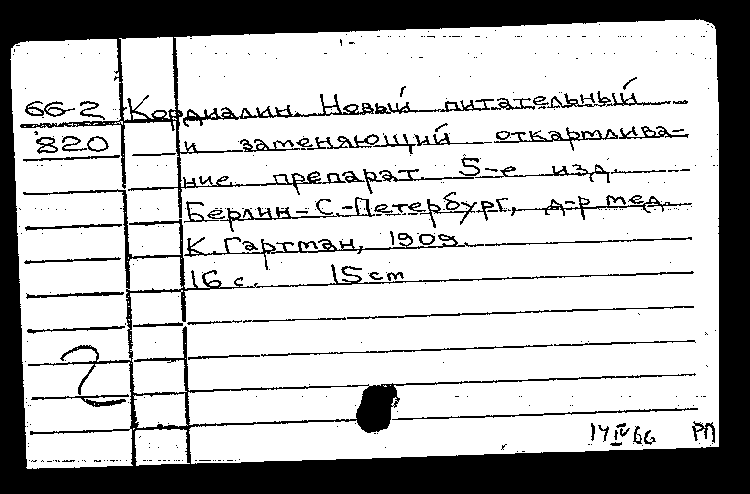 66-2 Кордиалин. Новый питательный
820 и заменяющий откармлива-
ние препарат. 5-е изд.
Берлин-С.-Петербург, д-р мед.
К. Гартман, 1909.
16 с. 15 см
2
14 IV 66 РП